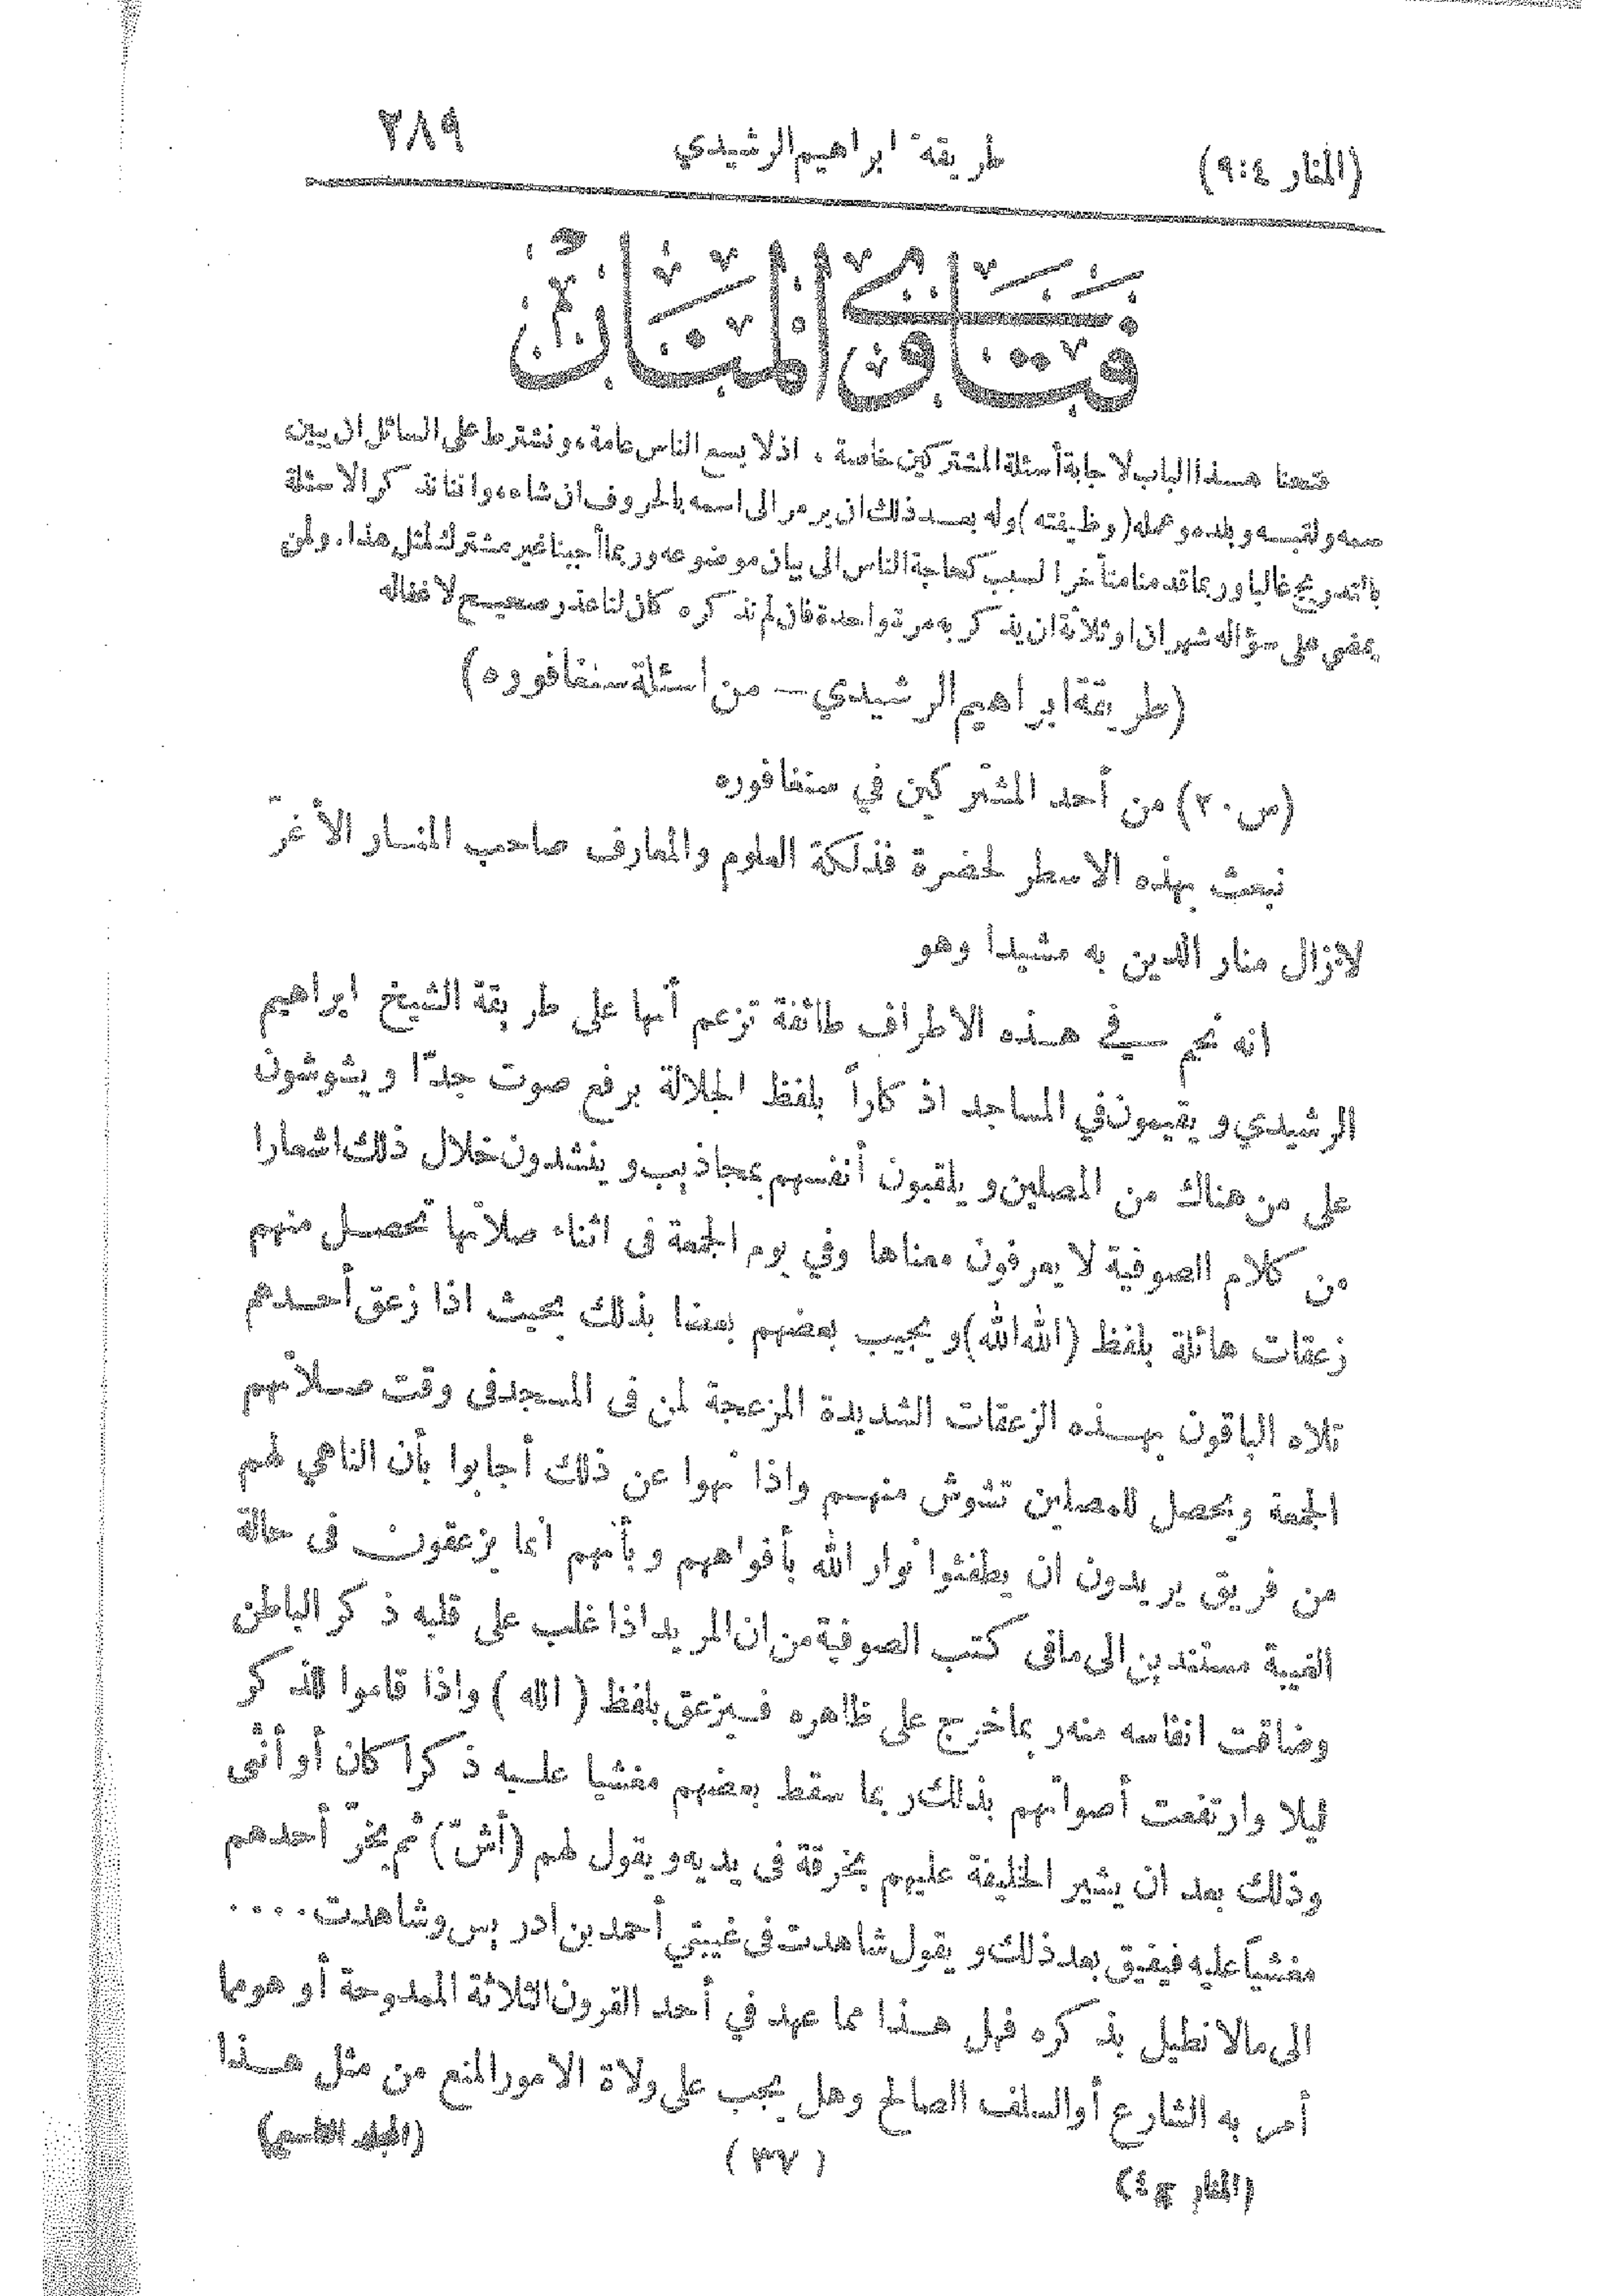 (المنار ٤:٩) طريقة ابراهيم الرشيدي ٢٨٩
فتاوى المنار
فتحنا هذا الباب لاجابة أسئلة المشتركين خاصة ، اذ لا يسع الناس عامة ، ونشترط على السائل ان يبين
اسمه ولقبه وبلده وعمله (وظيفته) وله بعد ذلك ان يرمز الى اسمه بالحروف ان شاء ، واننا نذكر الاسئلة
بالتدريج غالبا وربما قدمنا متأخرا لسبب كحاجة الناس الى بيان موضوعه وربما أجبنا غير مشترك لمثل هذا . ولمن
يمضي على سؤاله شهران او ثلاثة ان يذكر به مرة واحدة فان لم نذكره كان لنا عذر صحيح لاغفاله
(طريقة ابراهيم الرشيدي — من اسئلة سنغافوره)
(س ٢٠) من أحد المشتركين في سنغافوره
نبعث بهذه الاسطر لحضرة فذلكة العلوم والمعارف صاحب المنار الأغرّ
لا زال منار الدين به مشيدا وهو
انه نجم في هذه الاطراف طائفة تزعم أنها على طريقة الشيخ ابراهيم
الرشيدي ويقيمون في المساجد اذكاراً بلفظ الجلالة برفع صوت جدّا ويشوشون
على من هناك من المصلين ويلقبون أنفسهم بمجاذيب وينشدون خلال ذلك اشعارا
من كلام الصوفية لا يعرفون معناها وفي يوم الجمعة فى اثناء صلاتها تحصل منهم
زعقات هائلة بلفظ (الله الله) ويجيب بعضهم بعضا بذلك بحيث اذا زعق أحدهم
تلاه الباقون بهذه الزعقات الشديدة المزعجة لمن فى المسجد فى وقت صلاتهم
الجمعة ويحصل للمصلين تشوش منهم واذا نهوا عن ذلك أجابوا بأن الناهي لهم
من فريق يريدون ان يطفئوا نوار الله بأفواههم وبأنهم انما يزعقون فى حالة
الغيبة مستندين الى مافى كتب الصوفية من ان المريد اذا غلب على قلبه ذكر الباطن
وضاقت انفاسه منه ربما خرج على ظاهره فيزعق بلفظ ( الله ) واذا قاموا للذكر
ليلا وارتفعت أصواتهم بذلك ربما سقط بعضهم مغشيا عليه ذكرا كان أو أنثى
وذلك بعد ان يشير الخليفة عليهم بخرقة فى يديه ويقول لهم (أش) ثم يخرّ أحدهم
مغشياً عليه فيفيق بعد ذلك ويقول شاهدت فى غيبتي أحمد بن ادريس وشاهدت . . . .
الى مالا نطيل بذكره فهل هذا مما عهد في أحد القرون الثلاثة الممدوحة أو هو مما
أمر به الشارع أو السلف الصالح وهل يجب على ولاة الامور المنع من مثل هذا
(المنار ج ٤) (٣٧) (المجلد التاسع)